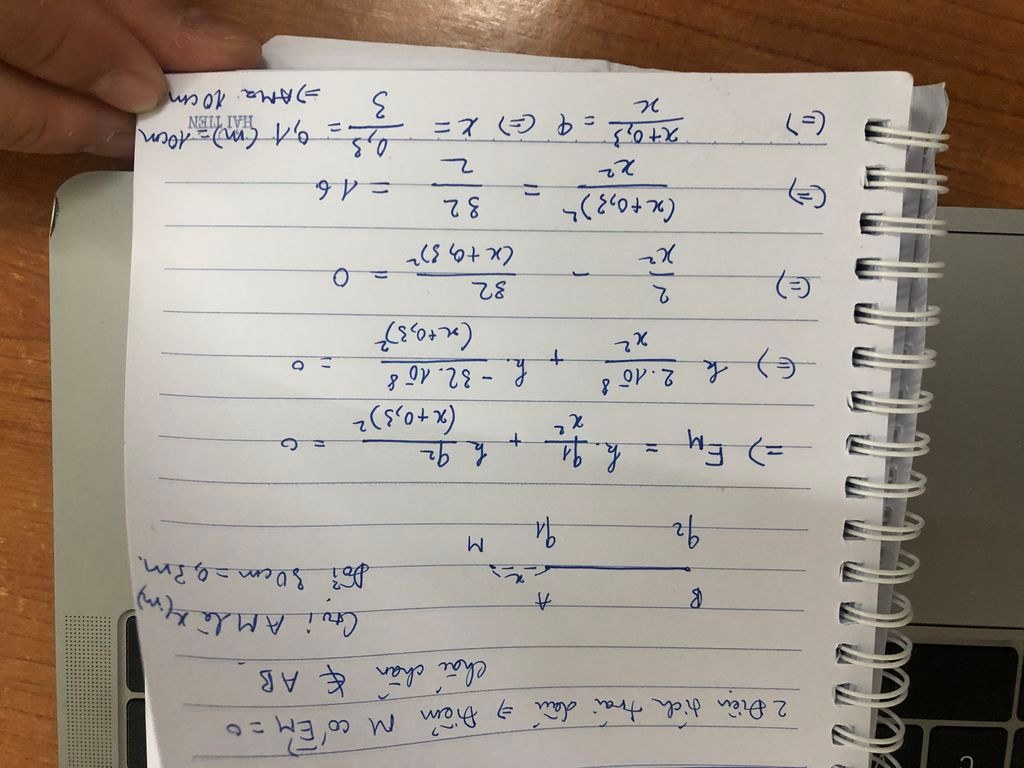 2 Điện tích trái dấu => Điểm M có E⃗M = 0
chắc chắn ∉ AB.
Gọi AM là x(m)
Đổi 30cm = 0,3m.
B A x M
q2 q1
=> EM = k. q1/x² + k q2/(x+0,3)² = 0
(=) k 2.10⁻⁸/x² + k. -32.10⁻⁸/(x+0,3)² = 0
(=) 2/x² - 32/(x+0,3)² = 0
(=) (x+0,3)²/x² = 32/2 = 16
(=) x+0,3/x = 4 (=) x = 0,3/3 = 0,1 (m) = 10cm
=) AM = 10cm
HẢI TIẾN